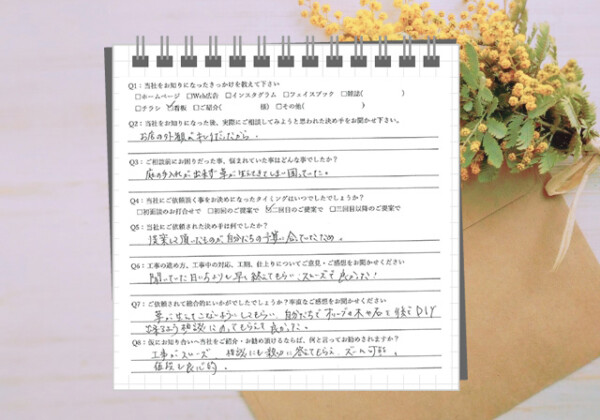 Q1：当社をお知りになったきっかけを教えて下さい
□ホームページ □Web広告 □インスタグラム □フェイスブック □雑誌( )
□チラシ ☑看板 □ご紹介( 様) □その他( )
Q2：当社をお知りになった後、実際にご相談してみようと思われた決め手をお聞かせ下さい。
お店の外観がキレイだったから。
Q3：ご相談前にお困りだった事、悩まれていた事はどんな事でしたか？
庭の手入れが出来ず草が生えてきてしまい困っていた。
Q4：当社にご依頼頂く事をお決めになったタイミングはいつでしたでしょうか？
□初面談のお打合せで □初回のご提案で ☑二回目のご提案で □三回目以降のご提案で
Q5：当社に依頼された決め手は何でしたか？
提案して頂いたものが、自分たちの予算に合っていたため。
Q6：工事の進め方、工事中の対応、工期、仕上りについてご意見・ご感想をお聞かせください
聞いていた日にちよりも早く終えてもらい、スムーズで良かった！
Q7：ご依頼されて総合的にいかがでしたでしょうか？率直なご感想をお聞かせください
草が生えてこないようにしてもらい、自分たちでオリーブの木や石を使うDIY
出来るよう相談にのってもらえて良かった。
Q8：仮にお知り合いへ当社をご紹介・お勧め頂けるならば、何と言ってお勧めされますか？
工事がスムーズ、相談にも親切に答えてもらえ、ズーム可能、
値段も良心的。